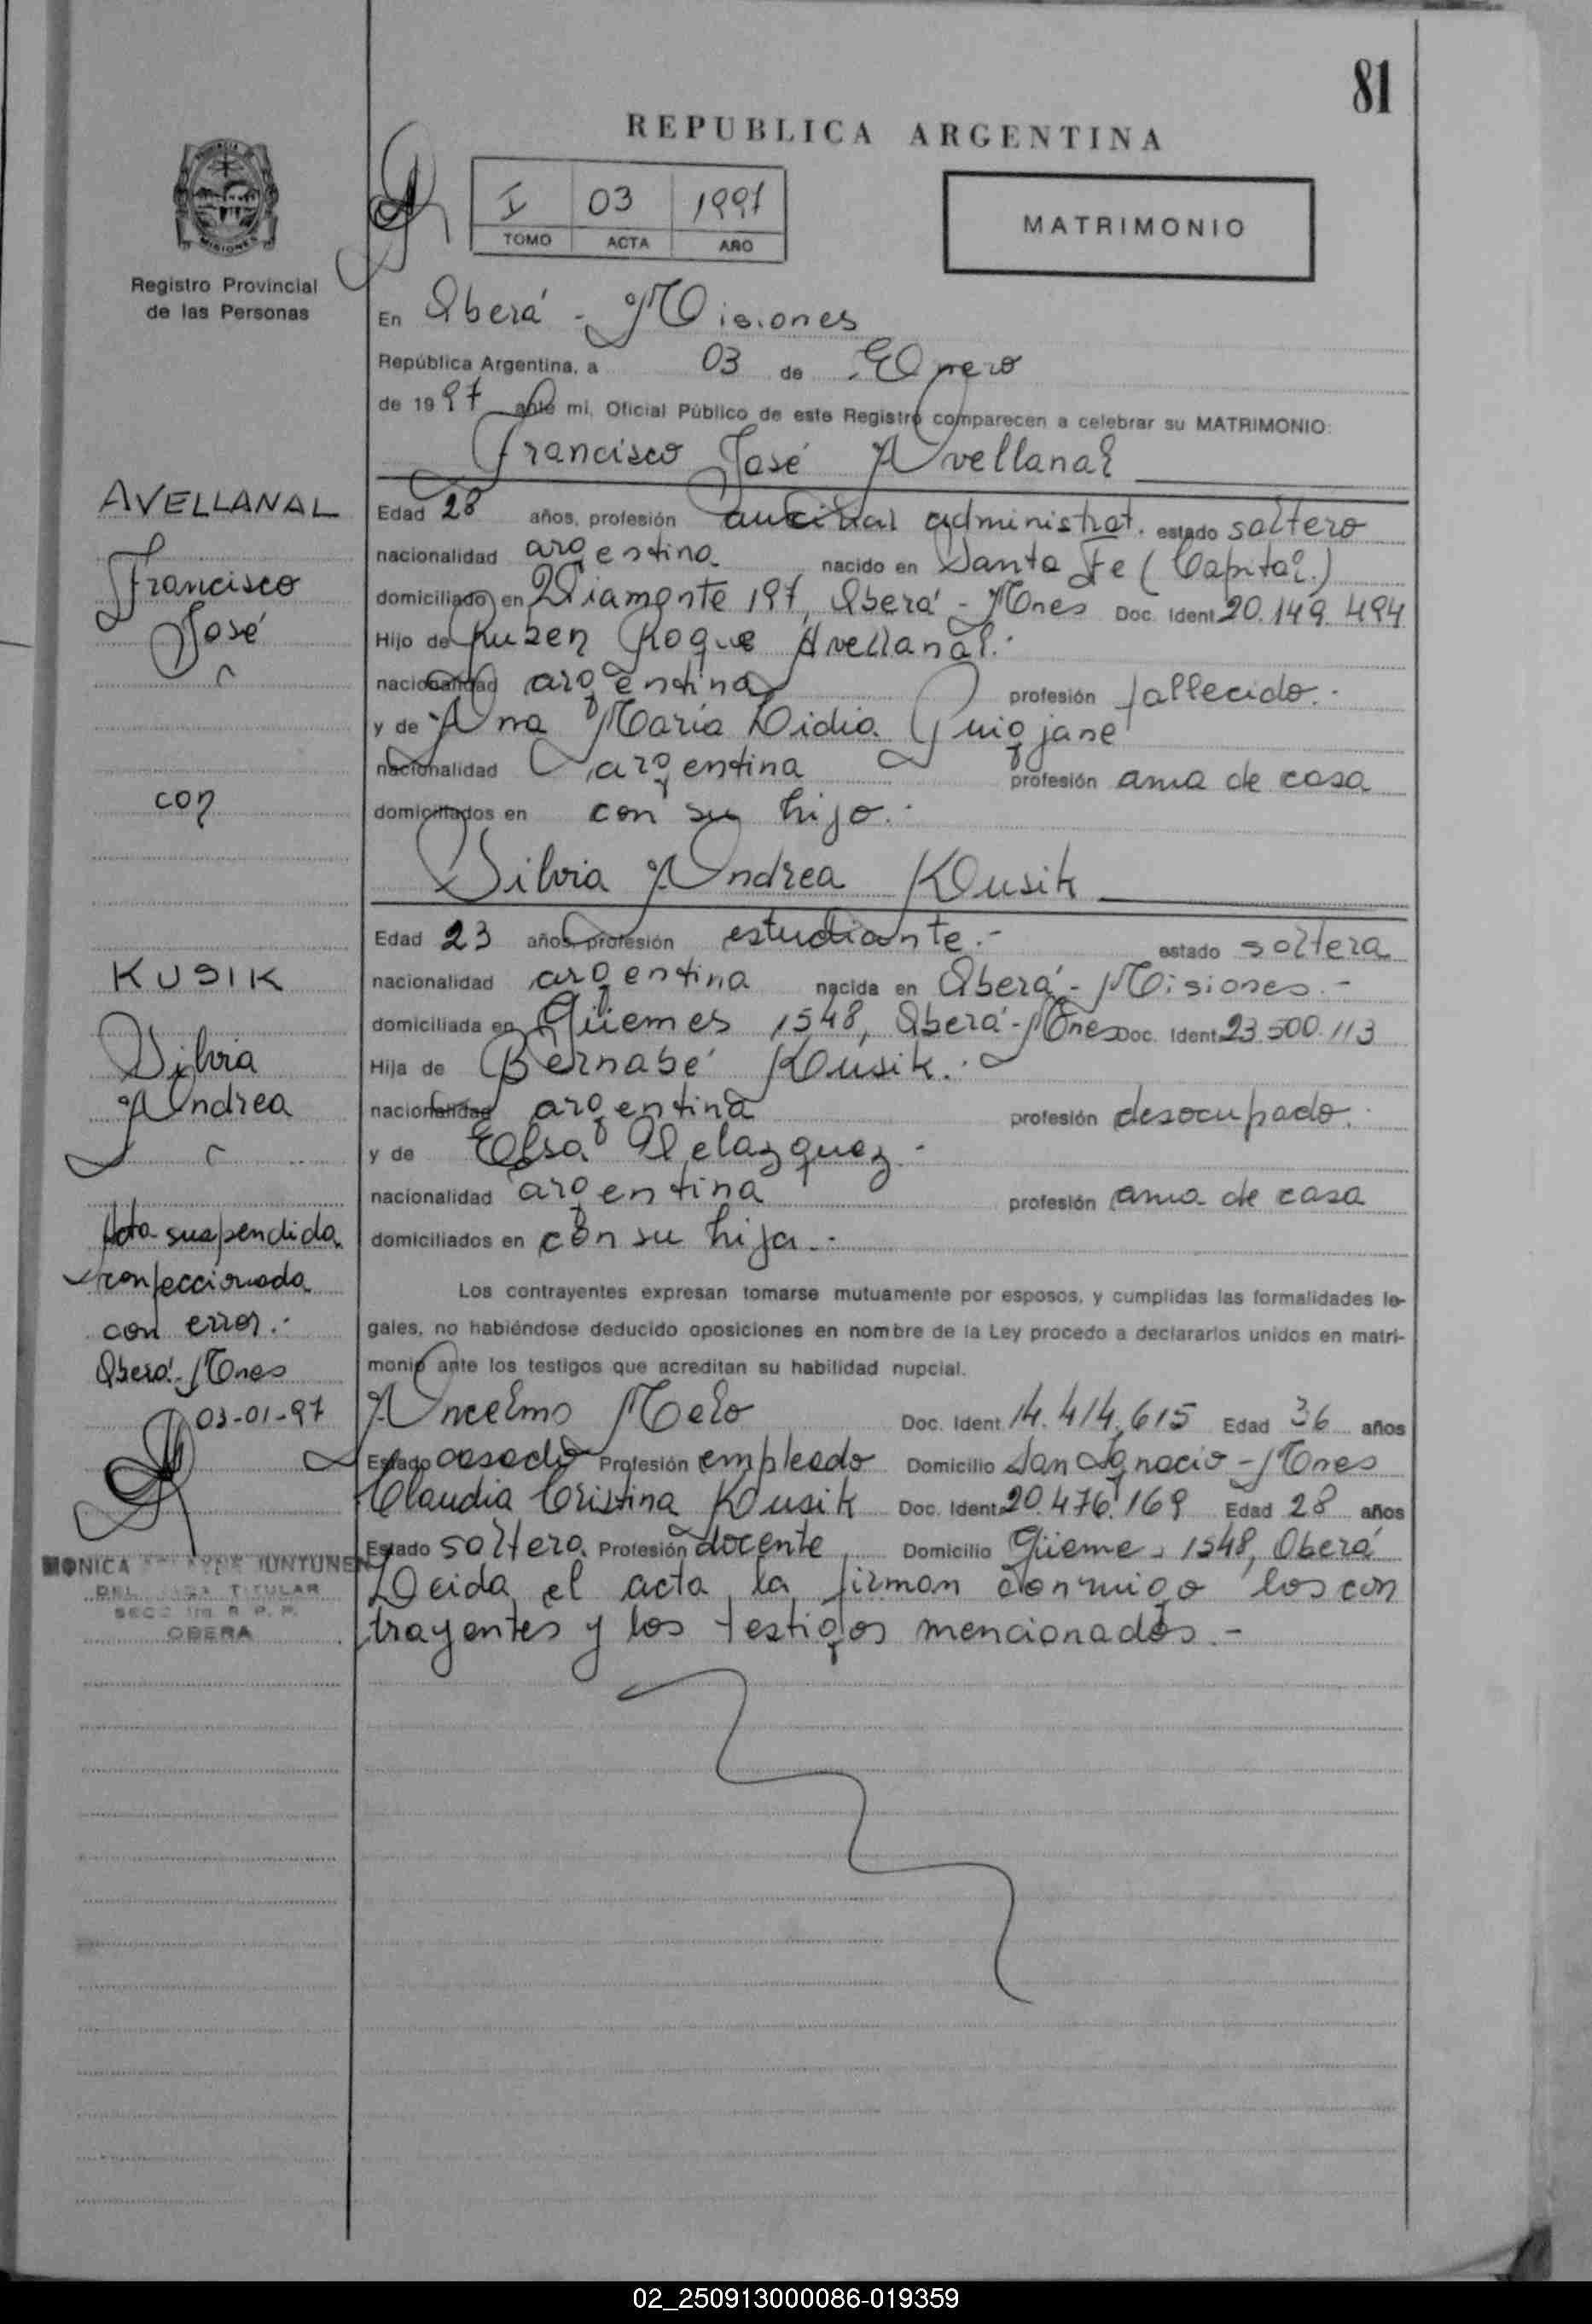 81
REPUBLICA ARGENTINA
I 03 1997
TOMO ACTA AÑO
MATRIMONIO
MISIONES
Registro Provincial
de las Personas
En Oberá - Misiones
República Argentina, a 03 de Enero
de 1997 ante mi, Oficial Público de este Registro comparecen a celebrar su MATRIMONIO:
Francisco José Avellanal
Edad 28 años, profesión auxiliar administrat. estado soltero
nacionalidad argentina nacido en Santa Fe (Capital.)
domiciliado en Diamante 197, Oberá - Mnes Doc. Ident. 20.149.494
Hijo de Ruben Roque Avellanal.-
nacionalidad argentina profesión fallecido.-
y de Ana María Lidia Puigjané
nacionalidad argentina profesión ama de casa
domiciliados en con su hijo.-
Silvia Andrea Kusik
Edad 23 años, profesión estudiante.- estado soltera
nacionalidad argentina nacida en Oberá - Misiones.-
domiciliada en Güemes 1548, Oberá - Mnes Doc. Ident. 23.500.113
Hija de Bernabé Kusik.-
nacionalidad argentina profesión desocupado.
y de Elsa Velazquez.-
nacionalidad argentina profesión ama de casa
domiciliados en con su hija.-
Los contrayentes expresan tomarse mutuamente por esposos, y cumplidas las formalidades le-
gales, no habiéndose deducido oposiciones en nombre de la Ley procedo a declararlos unidos en matri-
monio ante los testigos que acreditan su habilidad nupcial.
Ancelmo Melo Doc. Ident. 14.414.615 Edad 36 años
Estado casado Profesión empleado Domicilio San Ignacio - Mnes
Claudia Cristina Kusik Doc. Ident. 20.476.169 Edad 28 años
Estado soltera Profesión docente Domicilio Güemes 1548, Oberá
Leida el acta la firman conmigo los con
trayentes y los testigos mencionados.-
AVELLANAL
Francisco
José
con
KUSIK
Silvia
Andrea
Acta suspendida
confeccionada
con error.-
Oberá - Mnes
03-01-97
MONICA
TITULAR
R. P. P.
OBERA
02_250913000086-019359